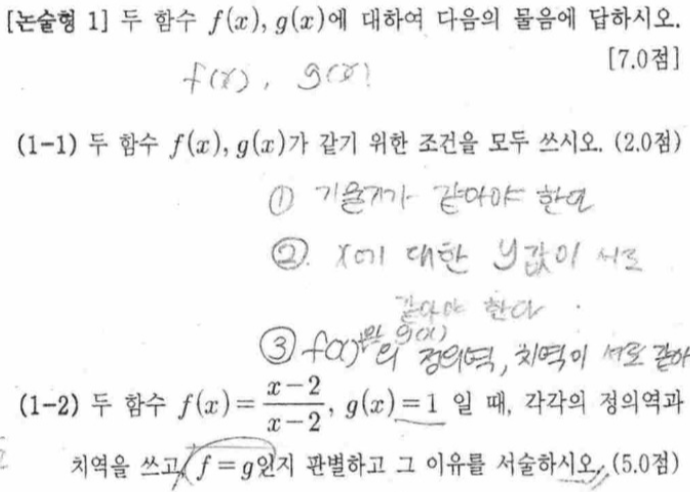 [논술형 1] 두 함수 f(x), g(x)에 대하여 다음의 물음에 답하시오.
[7.0점]
f(x), g(x)
(1-1) 두 함수 f(x), g(x)가 같기 위한 조건을 모두 쓰시오. (2.0점)
① 기울기가 같아야 한다
②. x에 대한 y값이 서로
같아야 한다.
③ f(x)와 g(x)의 정의역, 치역이 서로 같아
(1-2) 두 함수 f(x) = \frac{x-2}{x-2}, g(x) = 1 일 때, 각각의 정의역과
치역을 쓰고, f = g인지 판별하고 그 이유를 서술하시오. (5.0점)